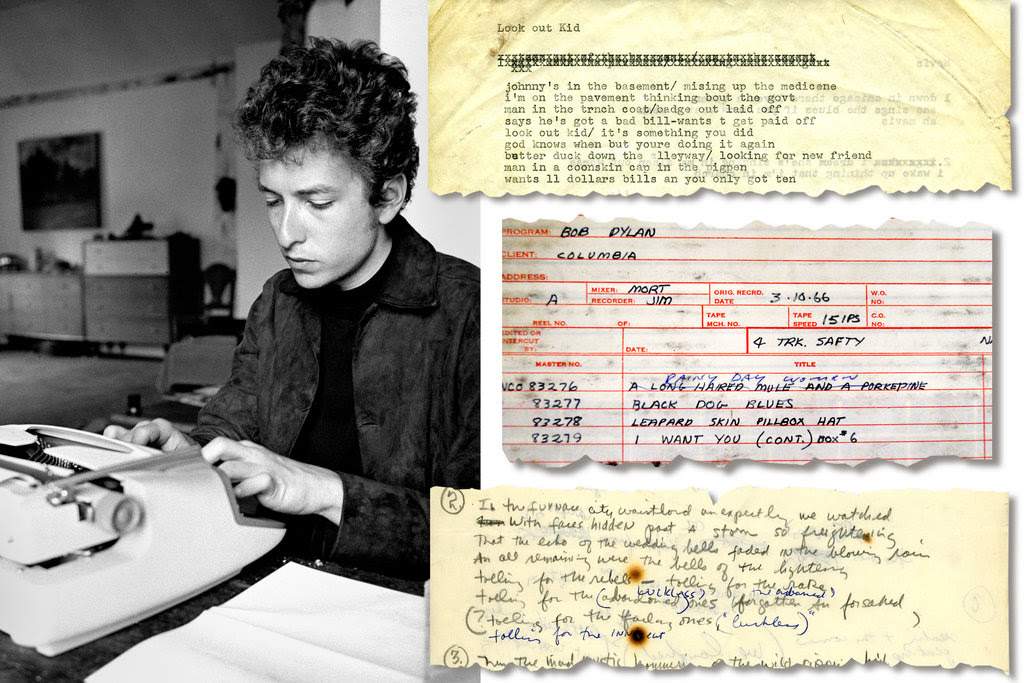 Look out Kid
johnny's in the basement/ mising up the medicene
i'm on the pavement thinking bout the govt
man in the trnch coat/badge out laid off
says he's got a bad bill-wants t get paid off
look out kid/ it's something you did
god knows when but youre doing it again
better duck down the alleyway/ looking for new friend
man in a coonskin cap in the pigpen
wants 11 dollars bills an you only got ten
PROGRAM: BOB DYLAN
CLIENT: COLUMBIA
ADDRESS:
STUDIO: A MIXER: MORT RECORDER: JIM ORIG. RECRD. DATE 3·10·66 W.O. NO:
REEL NO. OF: TAPE MCH. NO. TAPE SPEED 15 IPS C.O. NO:
EDITED OR INTERCUT BY: DATE: 4 TRK. SAFTY
MASTER NO. TITLE
RAINY DAY WOMEN
NCO 83276 A LONG HAIRED MULE AND A PORKEPINE
83277 BLACK DOG BLUES
83278 LEAPARD SKIN PILLBOX HAT
83279 I WANT YOU (CONT.) BOX #6
2. In the furnace city, unexpectly we watched
With faces hidden past a storm so freightening
That the echo of the wedding bells faded in the blowing rain
An all remaining were the bells of the lightening
tolling for the rebel tolling for the rake
luckless the advanced
tolling for the (abandoned) ones (forgotten an forsaked)
(? toeling for the ones, "luckless")
tolling for the
3. the mad mystic the wild